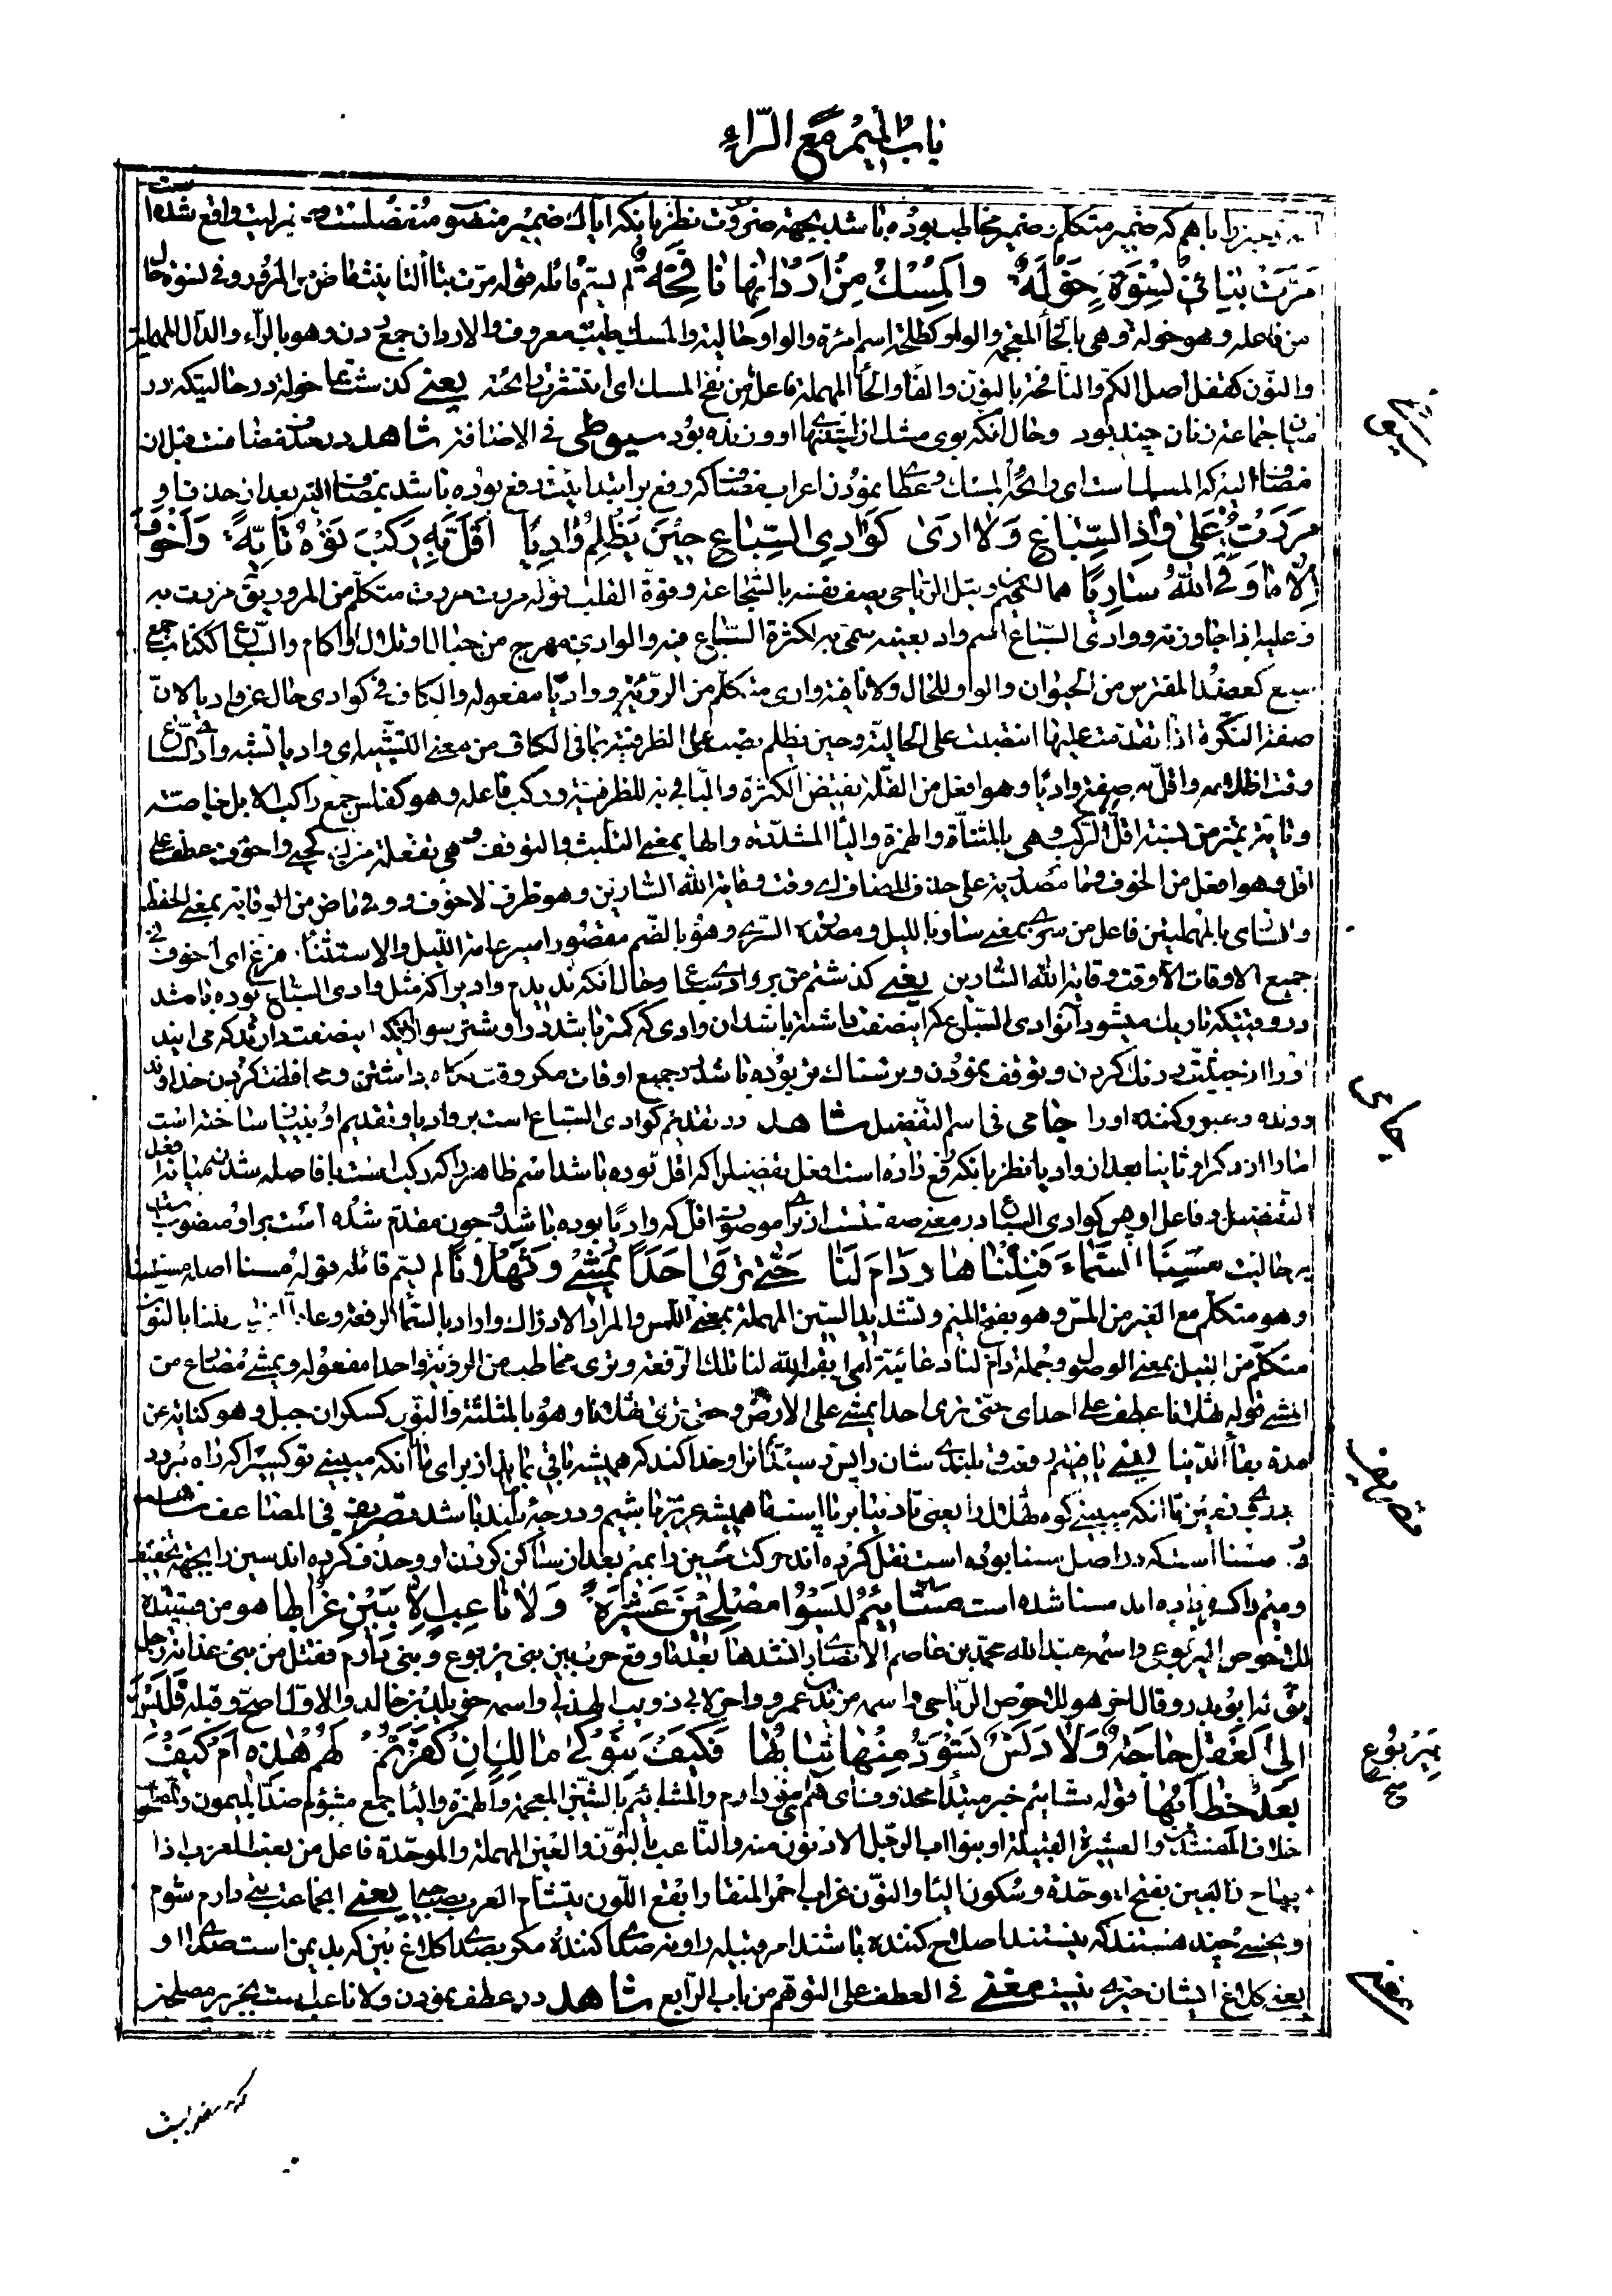 باب المیم مع الرّاء
را باهم که ضمیر متکلم و ضمیر مخاطب بوده باشد بجهة ضرورت نظر بانکه ایاك ضمیر منصوب منفصلست و واقع شده
مَرَّتْ بِنَا فِیْ نِسْوَةٍ خَوْلَةٌ وَالْمِسْكُ مِنْ اَرْدَانِهَا نَافِحَةٌ لم یسمّ قائله قوله مرّت بنا ماض من المرور و فی نسوة حال
من فاعله و هو خولة و هی بالخاء المعجمه و الواو کطلحة اسم امرئة و الواو حالیة و المسك طیب معروف و الاردان جمع ردن و هو بالراء و الدال المهملة
والنّون کقفل اصل الکم و النّافحة بالنون و الفاء و الحاء المهملة فاعل من نفح المسك ای انتشرت رائحته یعنی کذشت بما خولة در حالتیکه در
میان جماعة زنان چند بود و حال آنکه بوی مشك از استینهای او وزنده بود سیوطی فی الاضافة شاهد در حذف مضافست قبل از
مضاف الیه که المسك است ای رائحة المسك و عطا نمودن اعراب مضاف که رفع بر ابتدائیت رفع بوده باشد بمضاف الیه بعد از حذف او
مَرَرْتُ عَلٰی وَادِ السِّبَاعِ وَلَا اَرٰی کَوَادِی السِّبَاعِ حِیْنَ یَظْلِمُ وَادِیًا اَقَلَّ بِهِ رَکْبٌ تَوْهُ تَایَّةً وَ اَخْوَفَ
اِلَّا مَا وَقَی اللّٰهُ سَارِیًا هما لسحیم و بتل الریاحی یصف نفسه بالشجاعة و قوّة القلب قوله مررت متکلم من المرور یقال مررت به
و علیه اذا جاوزته و وادی السّباع اسم واد بعینه سمّی به لکثرة السّباع فیه و الوادی مفرج من جبال او تلال او اکام و السّباع ککتاب جمع
سبع کعضد المفترس من الحیوان و الواو للحال و لا نافیة و اری متکلم من الرؤیة و وادیا مفعوله و الکاف فی کوادی حال عن وادیا لان
صفة النکرة اذا تقدمت علیها انتصبت علی الحالیة و حین یظلم نصب علی الظرفیة لما فی الکاف من معنی التشبیه ای وادیا تشبه وادی السّباع
وقت اظلامه و اقل به صفة وادیًا و هو افعل من القلّة نقیض الکثرة و الباء فی به للظرفیة و رکب فاعله و هو کفلس جمع راکب الابل خاصّة
و تایّة تمیز من نسبة اقلّ الی الرکب و هی بالمثنّاة و الهمزة و الیاء المشدّدة و الهاء بمعنی التلبث و التوقف و هی تفعلة من و اخوف عطف علی
اقل و هو افعل من الخوف و ما مصدریة علی حذف المضاف ای وقت وقایة الله السّارین و هو ظرف لاخوف و وقی ماض من الوقایة بمعنی الحفظ
و السّاری بالمهملتین فاعل من سری بمعنی سار باللیل و مصدره السّری و هو بالضم مقصور اسیر عامة اللّیل و الاستثناء مفرغ ای اخوف فی
جمیع الاوقات الا وقت وقایة الله السّارین یعنی کذشتم من بر وادی سباع و حال آنکه ندیدم وادیرا که مثل وادی السّباع بوده باشد
در وقتیکه تاریك میشود آنوادی السّباع که اینصفت داشته باشد ان وادی که کمتر باشد در او شتر سوارانیکه اینصفت دارند که می ایند
او را از حیثیت درنك کردن و توقف نمودن و ترسناك تر بوده باشد در جمیع اوقات مکر وقت نکاه داشتن و محافظت کردن خداوند
رونده و عبور کننده او را جامی فی اسم التفضیل شاهد در تقدیم کوادی السّباع است بر وادیا و تقدیم او
را از ذکر او ثانیا بعد از وادیا نظر بانکه رفع داده است افعل تفضیل که اقل بوده باشد اسم ظاهر را که رکب است با فاصله شدن میان افعل
التفضیل و فاعل او هی کوادی السّباع در معرض صفت است از برای موصوف اقل که وادیًا بوده باشد و چون مقدم شده است بر او منصوب است
به حالیت مَسِسْنَا السَّمَاءَ فَنِلْنَاهَا وَدَامَ لَنَا حَتّٰی نَرٰی اَحَدًا یَمْشِیْ وَثَهْلَانَا لم یسمّ قائله قوله مسنا اصله مسسنا
و هو متکلم مع الغیر من المسّ و هو بفتح المیم و تشدید السین المهملة بمعنی اللّمس و المراد الادراك و اراد بالسّماء الرفعة و نلنا بالنّون
متکلم من النیل بمعنی الوصول و جملة دام لنا دعائیة ای ابقی الله لنا تلك الرّفعة و تری مخاطب من الرؤیة و احدا مفعوله و یمشی مضارع من
المشی قوله ثهلانا عطف علی احدا ای حتی تری احدا یمشی علی الارض و حتی تری ثهلانا و هو بالمثلثة و النون کسکران جبل و هو کنایة عن
مدة بقاء الدنیا یعنی یافتیم رفعت و بلندی شان را پس رسیدیم انرا و خدا کند که همیشه باقی بماند از برای ما تا انکه میبینی تو کسیرا که راه برود
بروی زمین تا انکه میبینی کوه ثهلان را یعنی تا دنیا برپا است ما همیشه عزیز باشیم و درجه ما بلند باشد تصریف فی المضاعف شاهد
در مسنا است که در اصل مسسنا بوده است نقل کرده اند حرکت سین را بمیم بعد از ساکن کردن او و حذف کرده اند سین را بجهة تخفیف
و میم را کسره داده اند مسنا شده است مَشَائِیْمُ لَیْسُوْا مُصْلِحِیْنَ عَشِیْرَةً وَلَا نَاعِبٍ اِلَّا بِبَیْنٍ غُرَابُهَا هو من قصیدة
للاخوص الیربوعی و اسمه عبد الله محمد بن عاصم الانصاری انشدها بعد ما وقع حرب بین بنی یربوع و بنی دارم فقتل من بنی غدانة رجل
یقال له ابو بدر و قال اخر هو للاحوص الریاحی و اسمه زید بن عمرو و اخر لابی ذویب الهذلی و اسمه خویلد بن خالد و الاول اصحّ و قبله فَلَیْسَ
اِلَی الْعَقْلِ حَاجَةٌ وَلَا دَنَسٌ تَسْوَدُّ مِنْهَا ثِیَابُهَا فَکَیْفَ بِنَوْکٰی مَالِكٍ اِنْ کَفَرْتُمْ لَهُمْ هٰذِهٖ اَمْ کَیْفَ
بَعْدُ خِطَابُهَا قوله مشائیم خبر مبتدأ محذوف ای هم بنی دارم و المشائیم بالشین المعجمة و الهمزة و الیاء جمع مشؤم ضد المیمون و المصلح
خلاف المفسد و العشیرة القبیلة او بنوا اب الرجل الادنون منه و النّاعب بالنون و العین المهملة و الموحّدة فاعل من نعب الغراب اذا
صاح و البین بفتح الموحّدة و سکون الیاء و النّون غراب احمر المنقار ابقع اللون یتشأم العرب بصیحه یعنی انجماعت بنی دارم شوم
و نجسی چند هستند که نیستند اصلاح کننده باشند امر قبیله را و نه صدا کننده مکر بصدای کلاغ بین که بد یمن است صدای او
یعنی کلاغ ایشان خبر نیست مغنی فی العطف علی التوهم من باب الرّابع شاهد در عطف نمودن و لا ناعب است بجر بر مصلحین
سیوطی
جامی
تصریف
یَرْبُوع
صح
مغنی